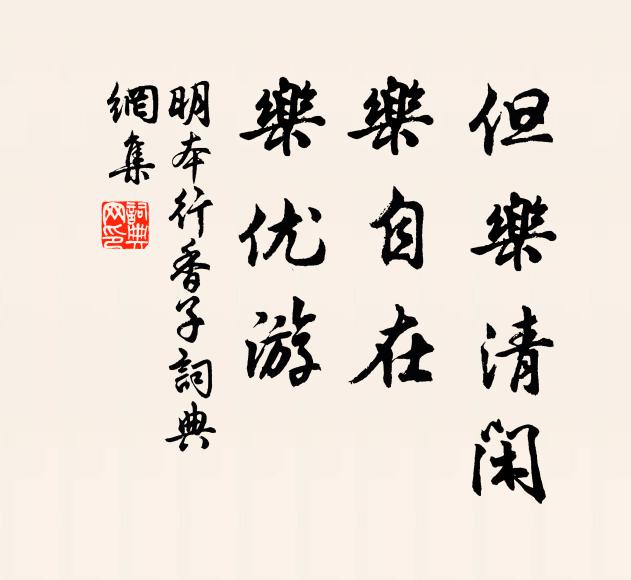 但樂清閑
樂自在
樂优游
明本行香子詞典
網集
詞典
网印